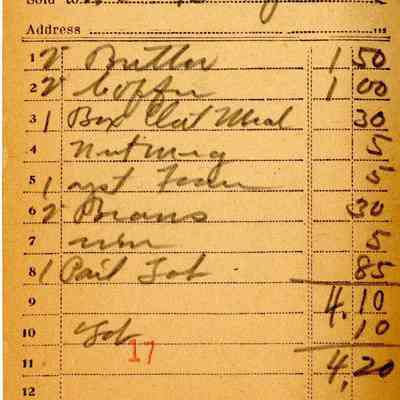 Sold to
Address
1 2 Butter 1 50
2 2 Coffee 1 00
3 1 Box Oat Meal 30
4 Nutmeg 5
5 1 yst Foam 5
6 2 Beans 30
7 5
8 1 Pail 85
9 4.10
10 10
17
11 4.20
12